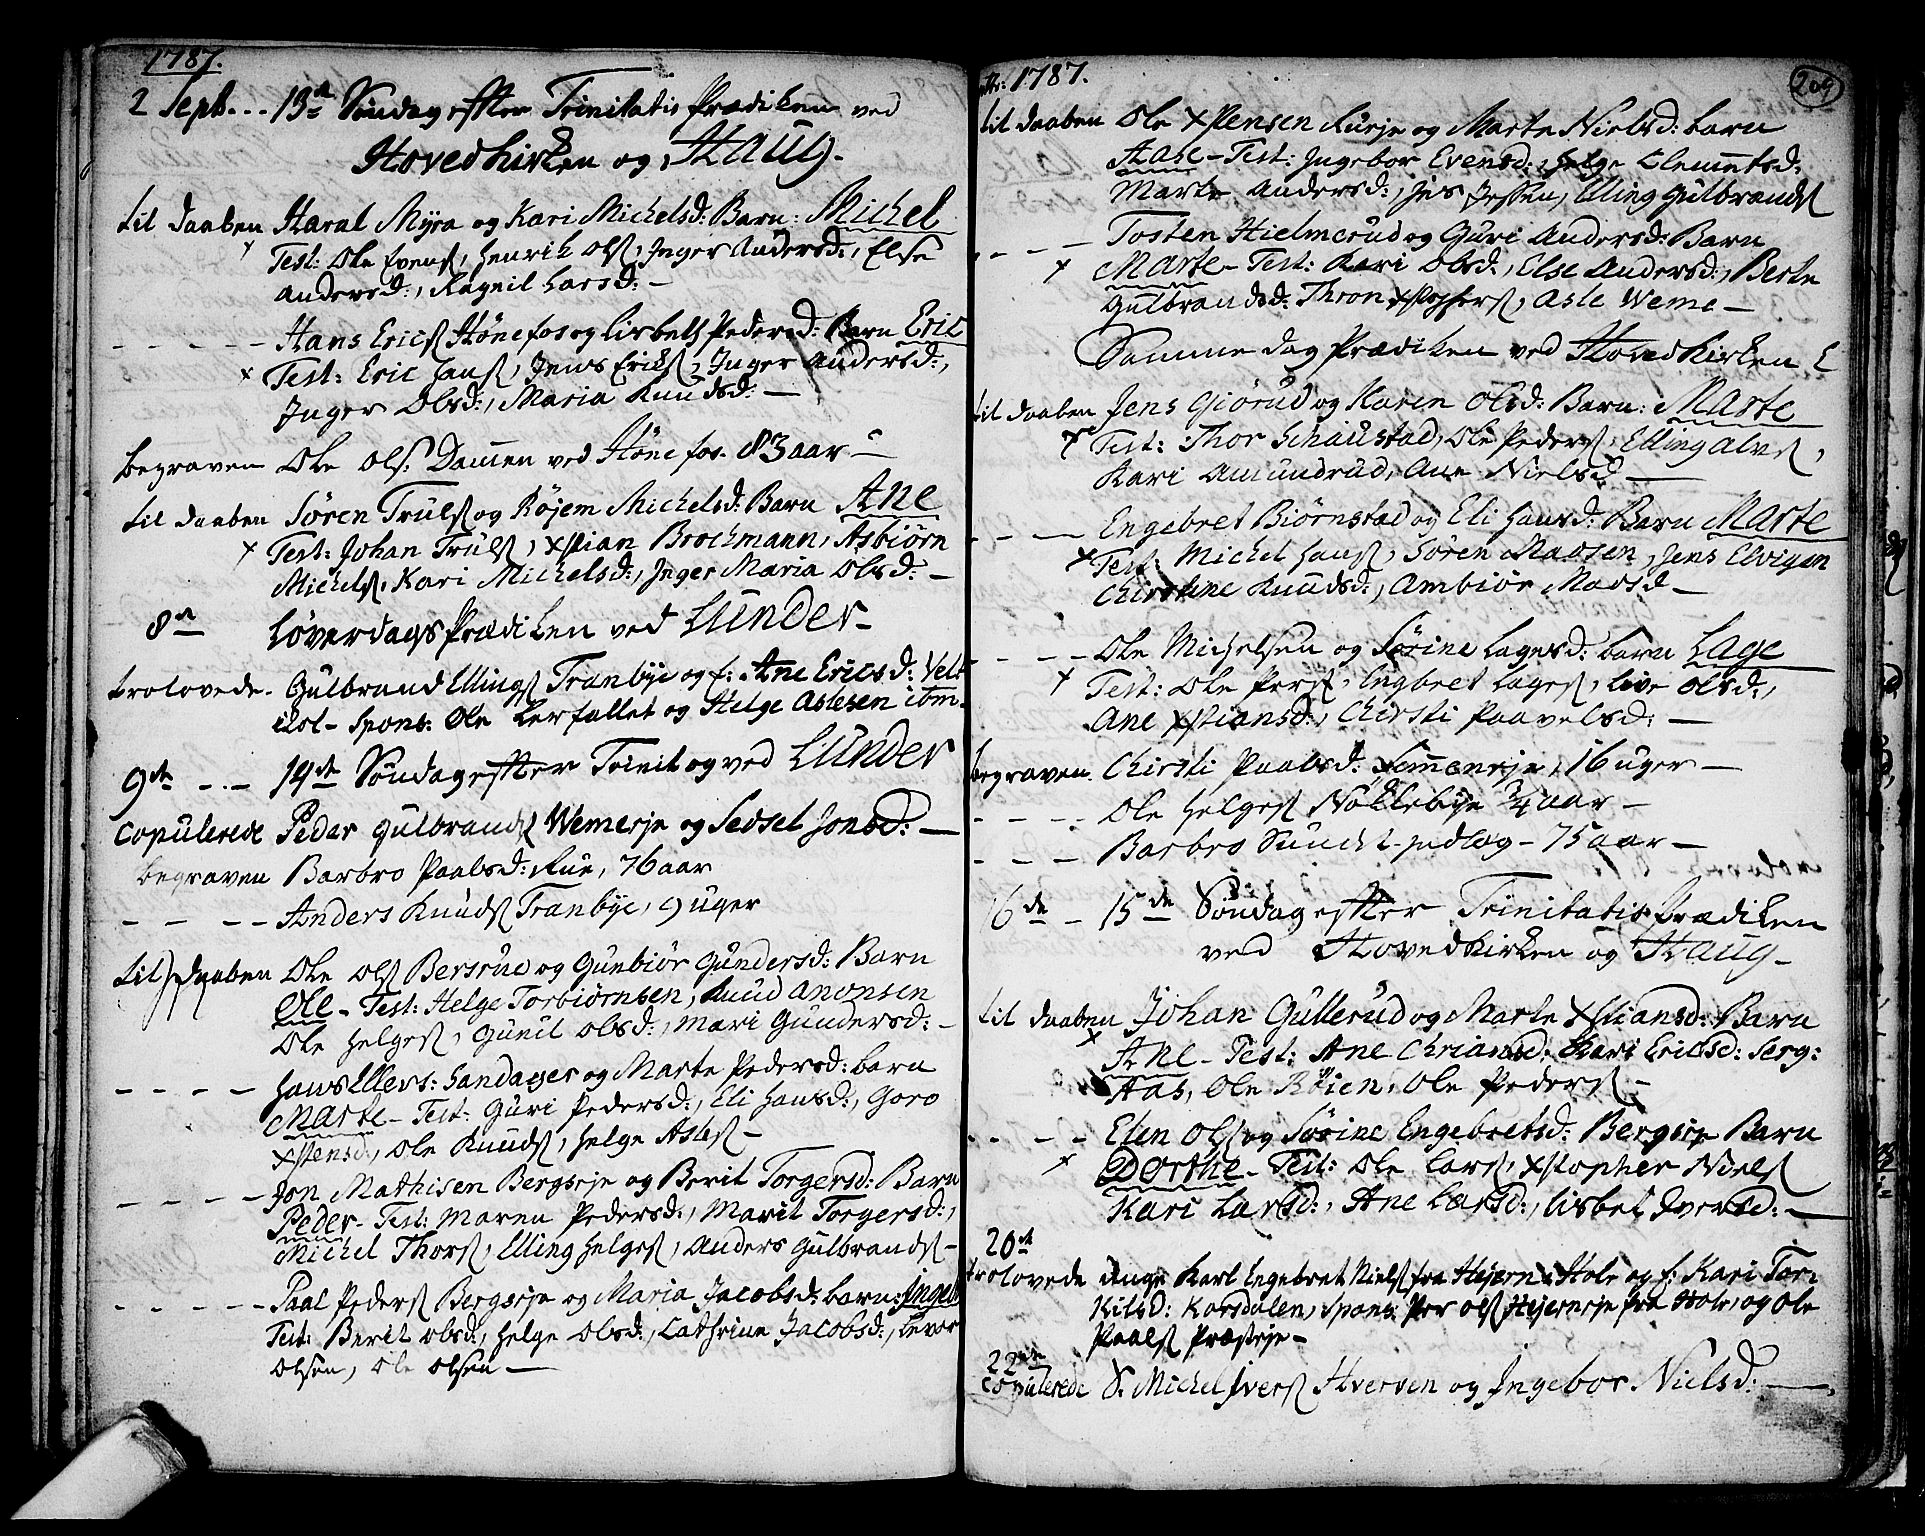 1787.
2 Sept. - - 13de Søndag efter Trinitatis Prædiken ved
Hovedkirken og Haug.
til daaben Haral Myra og Kari Michelsd: Barn: Michel
Test: Ole Evens, Henrik Ols, Inger Andersd:, Else
Andersd:, Ragnil Larsd: -
- - - - - Hans Erics Hønefos og Lisbeth Pedersd: Barn Eric
x Test: Eric Hans, Jens Eriks, Inger Andersd:,
Inger Olsd:, Maria Knudsd: -
begraven Ole Ols: Dammen ved Hønefos. 83 aar -
til daaben Søren Truls og Røjem Michelsd: Barn Ane
x Test: Johan Truls, xstian Brochmann, Asbiørn
Michels, Kari Michelsd:, Inger Maria Olsd: -
8de Løverdags Prædiken ved Lunder -
trolovede - Gulbrand Ellings Tranbye og f: Ane Ericsd:
Spons: Ole Lerfallet og Helge Aslesen
9de - . - 14de Søndag efter Trinit og ved Lunder
Copulerede Peder Gulbrands Wemeseje og Sedsel Jonsd: -
begraven Barbro Paalsd: Rue, 76 aar
- - - - Anders Knuds Tranbye, 9 uger
til daaben Ole Ols Bersrud og Gunbiør Gundersd: Barn
Ole - Test: Helge Torbiørnsen, Knud Anonsen
Ole Helges, Gunil Olsd:, Mari Gundersd: -
- - - - Hans Ellevs: Sandager og Marte Pedersd: barn
Marte - Test: Guri Pedersd:, Eli Hansd:, Goro
xstensd:, Ole Knuds, Helge Asles -
- - - - Jon Mathisen Bergseje og Berit Torgersd: Barn
Peder - Test: Maren Pedersd:, Marit Torgersd:,
Michel Thors, Elling Helges, Anders Gulbrands -
- - - - - Paal Peders Bergseje og Maria Jacobsd: barn:
Test: Berit Olsd:, Helge Olsd:, Cathrine Jacobsd:, Levor
Olsen, Ole Olsen -
1787.
209
til daaben Ole xstensen Rueje og Marte Nielsd: barn
Aase - Test: Ingebor Evensd:, Helge Clemetsd:
Marte Andersd:, Jens Jessen, Elling Gulbrands
- - - Tosten Hielmerud og Guri Andersd: Barn
x Marte - Test: Kari Olsd:, Else Andersd:, Berte
Gulbrandsd: Thron xstophers, Asle Weme -
Samme dag Prædiken ved Hovedkirken
til daaben Jens Giørud og Karen Olsd: Barn: Marte
x Test: Thor Schaustad, Ole Peders, Elling Alvs,
Kari Amundrud, Ane Nielsd -
- - - Engebret Biørnstad og Eli Hansd: Barn Marte
x Test: Michel Hans, Søren Madsen, Jens Elvigen
Christine Knudsd:, Ambiør Madsd -
- - - - Ole Michelsen og Sørine Lagesd: barn Lage
x Test: Ole Pers, Engbret Lages, Live Olsd:,
Ane xstiansd:, Chirsti Paavelsd: -
begraven. Chirsti Paalsd: Semmeneje, 16 uger -
- - - - Ole Helges Nøklebye 3/4 aar -
- - - Barbro Sundt 75 aar -
16de - 15de Søndag efter Trinitatis Prædiken
ved Hovedkirken og Haug -
til daaben Johan Gullerud og Marte xstiansd: Barn
x Ane - Test: Ane Kari Ericsd: Serg:
Aas, Ole Røien, Ole Peders -
- - - - Elen Ols og Sørine Engebretsd: Bergseje Barn
x Dorthe - Test: Ole Lars, xstopher Niels
Kari Larsd:, Ane Larsd:, Lisbet Iversd: -
20de
trolovede unge Karl Engebret Niels fra Hejern i Hole og f: Kari Tor-
kilsd: Korsdalen, Spons: Per Ols Hejerneje fra Hole, og Ole
Paals Præsteje -
22de
Copulerede S: Michel Ivers Hverven og Ingebor Nielsd: -